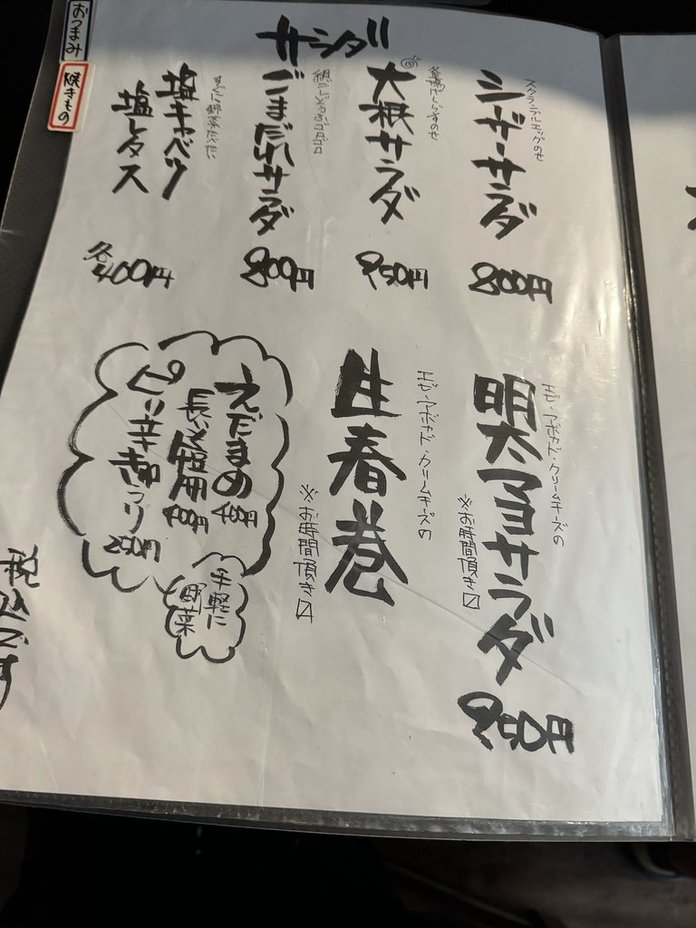 おつまみ
焼きもの
サラダ
スクランブルエッグのせ
シーザーサラダ
800円
釜揚げしらすのせ
大根サラダ
950円
ごまだれサラダ
800円
すぐに野菜たいに
塩キャベツ
塩レタス
各400円
エビ・アボカド・クリームチーズの
明太マヨサラダ
※お時間頂き〼
950円
エビ・アボカド・クリームチーズの
生春巻
※お時間頂き〼
えだまめ
400円
長いも短冊
400円
ピリ辛きゅうり
250円
手軽に
野菜
税込です